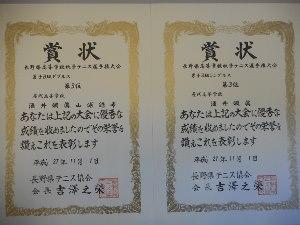 賞状
長野県高等学校秋季テニス選手権大会
男子B級ダブルス
第3位
あなたは上記の大会に優秀な
成績を収めましたのでその栄誉を
讃えこれを表彰します
平成27年11月1日
長野県テニス協会
会長 吉澤之榮
賞状
長野県高等学校秋季テニス選手権大会
男子B級シングルス
第3位
酒井
あなたは上記の大会に優秀な
成績を収めましたのでその栄誉を
讃えこれを表彰します
平成27年11月1日
長野県テニス協会
会長 吉澤之榮